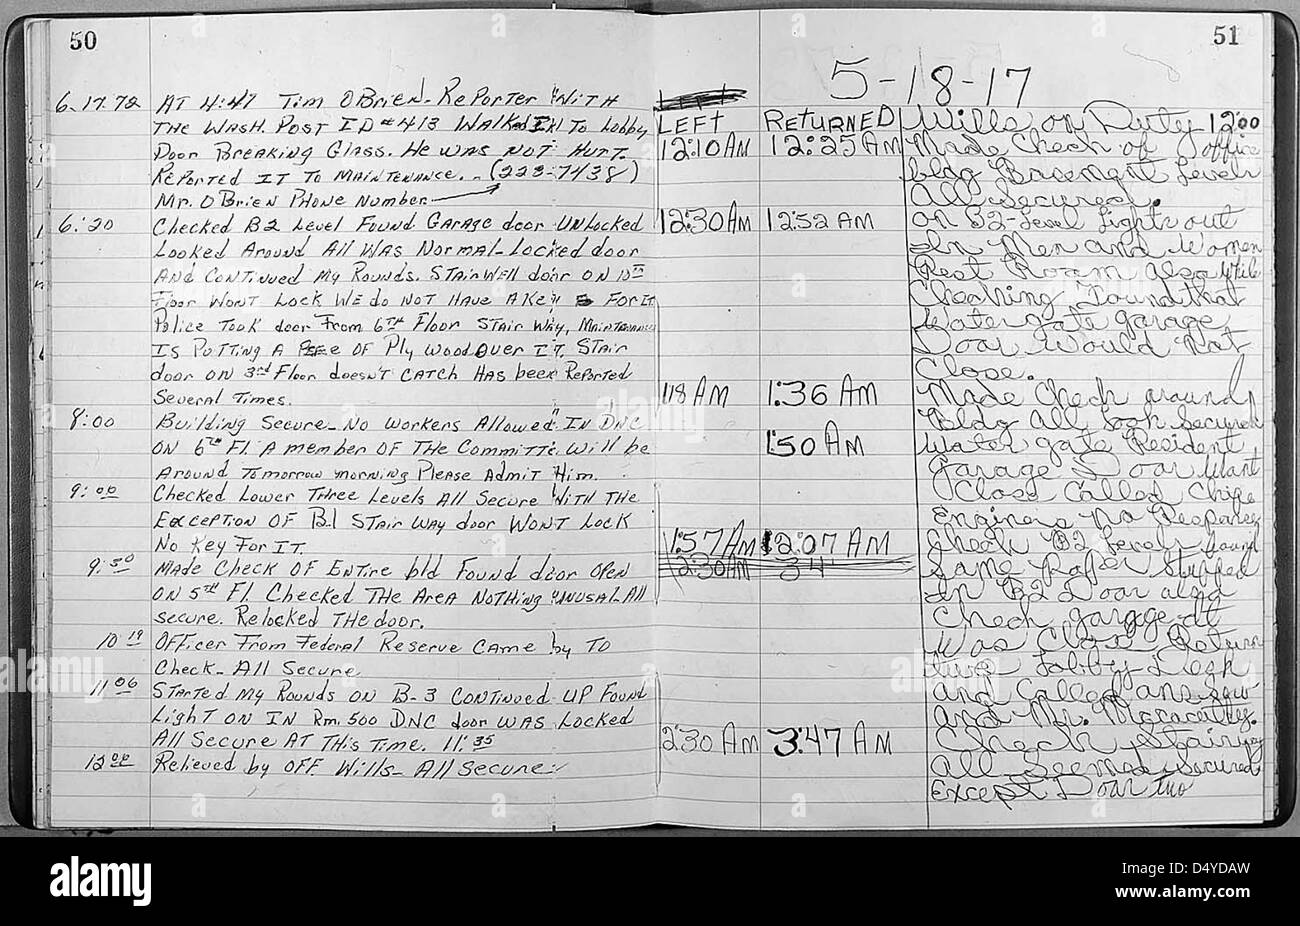 50
6-17-72 AT 4:47 Tim OBrien- Reporter WITH
THE WASH. POST ID #413 Walked to Lobby
Door Breaking Glass. He was not Hurt.
Reported IT To Maintenance. - (223-7438)
Mr. OBrien Phone Number
6:20 Checked B2 Level Found Garage door UNLocked
Looked Around All Was Normal- Locked door
And continued My Rounds. Stairwell door on 10TH
Floor WonT Lock We do NOT Have A Key For IT
Police Took door From 6TH Floor Stair Way, Maintenance
Is Putting A OF Ply wood over IT. Stair
door on 3rd Floor doesn't catch Has been Reported
Several Times.
8:00 Building Secure- No workers Allowed In DNC
ON 6TH Fl. A member OF THe Committe will be
Around Tomorrow morning Please Admit Him.
9:00 Checked Lower Three Levels All Secure WITH THE
Exception OF B1 Stair Way door WonT Lock
No Key For IT.
9:30 Made Check OF Entire bld Found door open
ON 5TH Fl. Checked THe Area NoTHing unusal All
secure. Relocked THe door.
10 19 Officer From Federal Reserve Came by To
Check- All Secure
11 06 Started My Rounds on B-3 continued up Found
Light on IN Rm. 500 DNC door was Locked
All Secure AT THis Time. 11:35
12 00 Relieved by OFF Wills- All Secure
51
5-18-17
LEFT RETURNED Wills on Duty 12:00
12:10 AM 12:25 AM Made Check of office
bldg Basemgnt Levels
All Secured.
12:30 AM 12:52 AM on B2-Level Lights out
In Men and Women
Rest Room also While
Checking Found that
Watergate garage
Door Would Not
Close.
118 AM 1:36 AM Made Check around
Bldg All Secured
1:50 AM Water gate Resident
Garage Door Want
Close Called
No
1:57 AM 2:07 AM Check B2 Levels found
2:30 AM Some Paper Stuffed
In B2 Door also
Check garage It
Was Close Return
Lobby Desk
and Called
and Mr.
2:30 AM 3:47 AM Check
all Seemed Secured
Except Door two
alamy
a
Image ID: D4YDAW
www.alamy.com